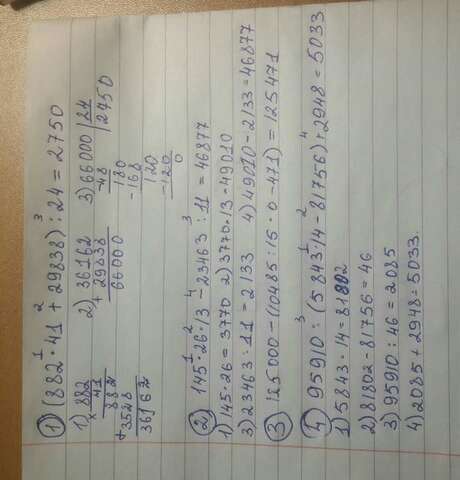 1) (882 · 41 + 29838) : 24 = 2750
1 2 3
1) 882
× 41
882
+ 3528
36162
2) 36162
+ 29838
66000
3) 66000 | 24
- 48 | 2750
180
- 168
120
- 120
0
2) 145 · 26 · 13 - 23463 : 11 = 46877
1 2 4 3
1) 145 · 26 = 3770 2) 3770 · 13 = 49010
3) 23463 : 11 = 2133 4) 49010 - 2133 = 46877
3) 125000 - (10485 : 15 · 0 - 471) = 125471
4) 95910 : (5843 · 14 - 81756) + 2948 = 5033
3 1 2 4
1) 5843 · 14 = 81802
2) 81802 - 81756 = 46
3) 95910 : 46 = 2085
4) 2085 + 2948 = 5033.